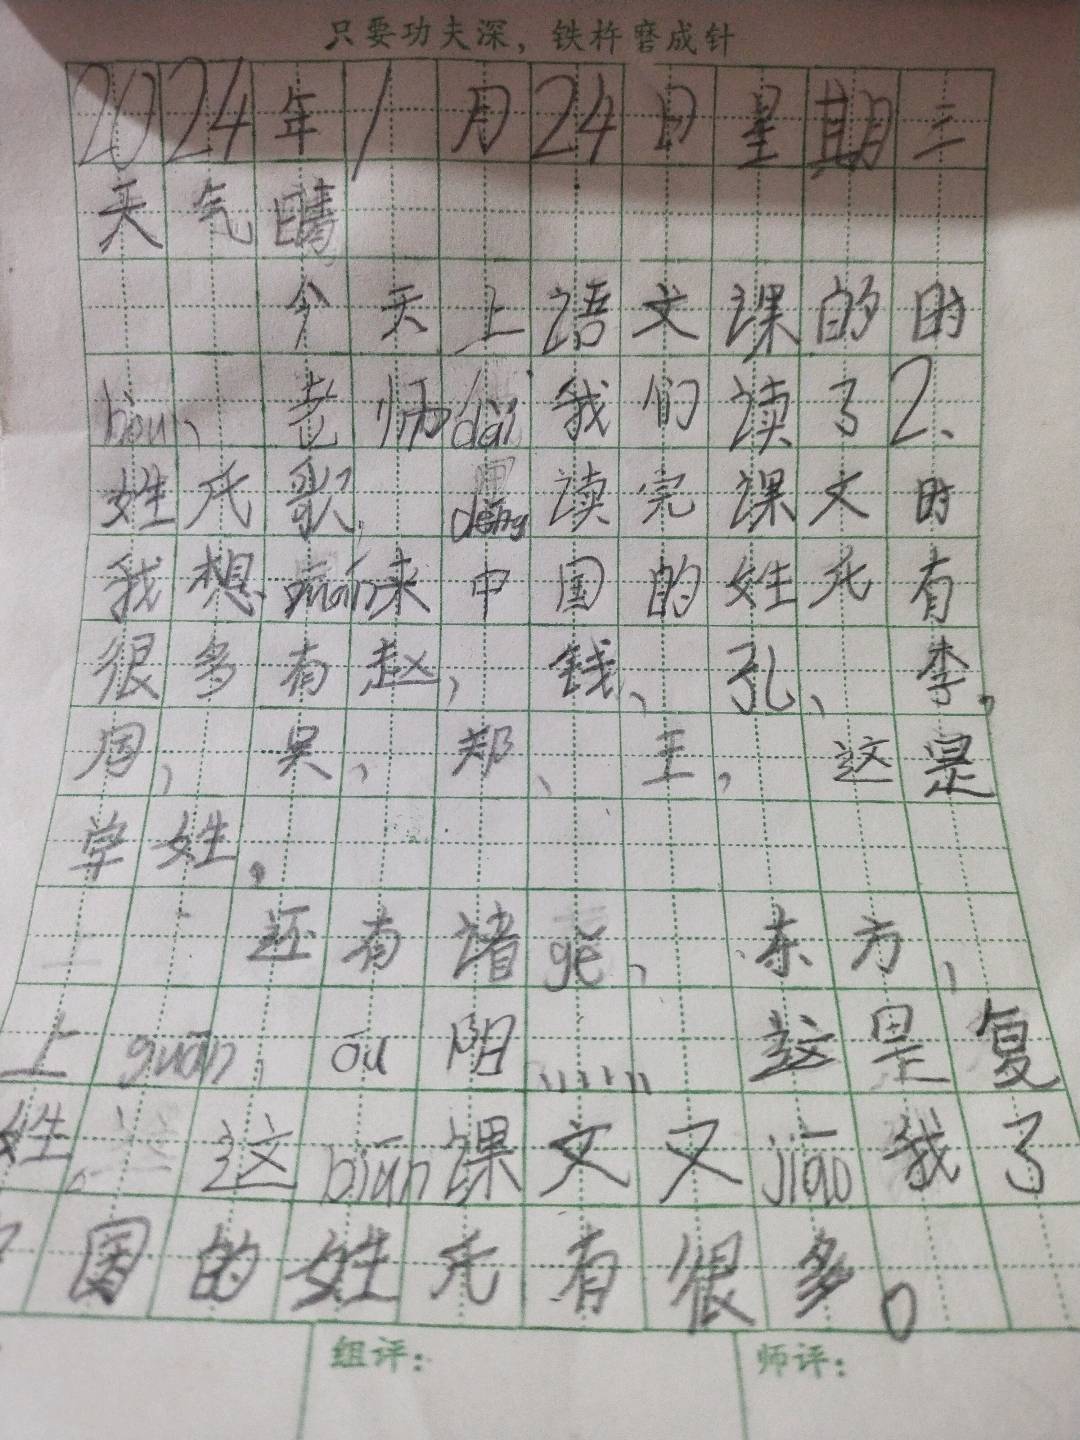 只要功夫深，铁杵磨成针
2024年1月24日星期三
天气晴
今天上语文课的时
hòu、老师dài我们读了2、
姓氏歌，děng读完课文时
我想、yuán来中国的姓氏有
很多有赵，钱、孔、李，
周，吴、郑、王，这是
学姓，
还有诸gě、东方，
上guān，ōu阳，，，，，，这是复
姓，这biān课文又jiāo我了
国的姓氏有很多。
组评：
师评：